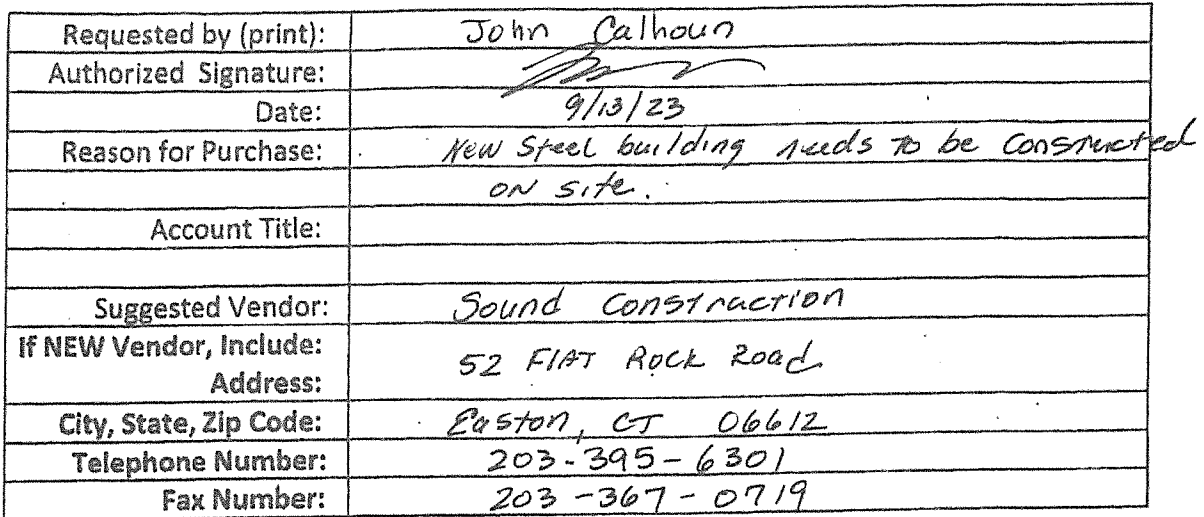 Requested by (print): John Calhoun
Authorized Signature:
Date: 9/13/23
Reason for Purchase: New Steel building needs to be constructed
ON site.
Account Title:
Suggested Vendor: Sound Construction
If NEW Vendor, Include:
Address: 52 FlAT Rock Road
City, State, Zip Code: Easton, CT 06612
Telephone Number: 203-395-6301
Fax Number: 203-367-0719